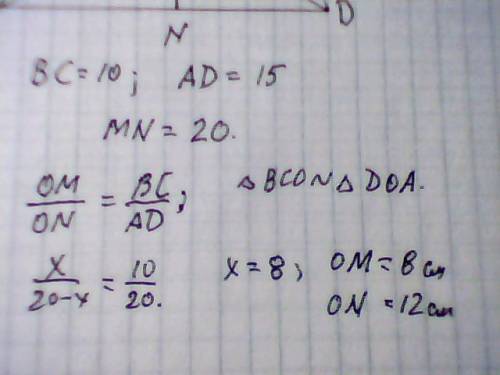 N D
BC = 10; AD = 15
MN = 20.
OM/ON = BC/AD; △BCO N △DOA.
x/20-x = 10/20. x = 8; OM = 8 см
ON = 12 см